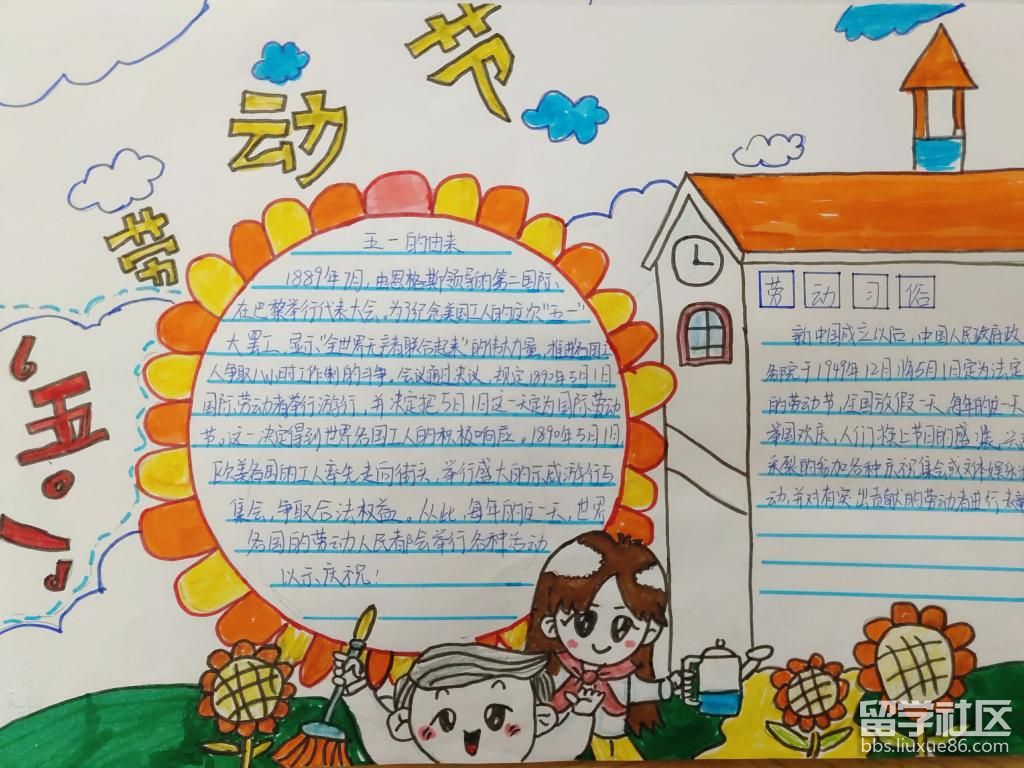 劳动节
五一
五一的由来
1889年7月,由恩格斯领导的第二国际、
在巴黎举行代表大会。为了纪念美国工人的这次“五一”
大罢工,显示“全世界无产者联合起来”的伟大力量,推进各国工
人争取八小时工作制的斗争,会议通过决议,规定1890年5月1日
国际劳动者举行游行,并决定把5月1日这一天定为国际劳动
节。这一决定得到世界各国工人的积极响应。1890年5月1日,
欧美各国的工人率先走向街头,举行盛大的示威游行与
集会,争取合法权益。从此,每年的这一天,世界
各国的劳动人民都会举行各种活动
以示庆祝!
劳动习俗
新中国成立以后,中国人民政府政
务院于1949年12月将5月1日定为法定
的劳动节,全国放假一天。每年的这一天
举国欢庆,人们换上节日的盛装,
采烈的参加各种庆祝集会或文体娱乐活
动,并对有突出贡献的劳动者进行表
留学社区
bbs.liuxue86.com